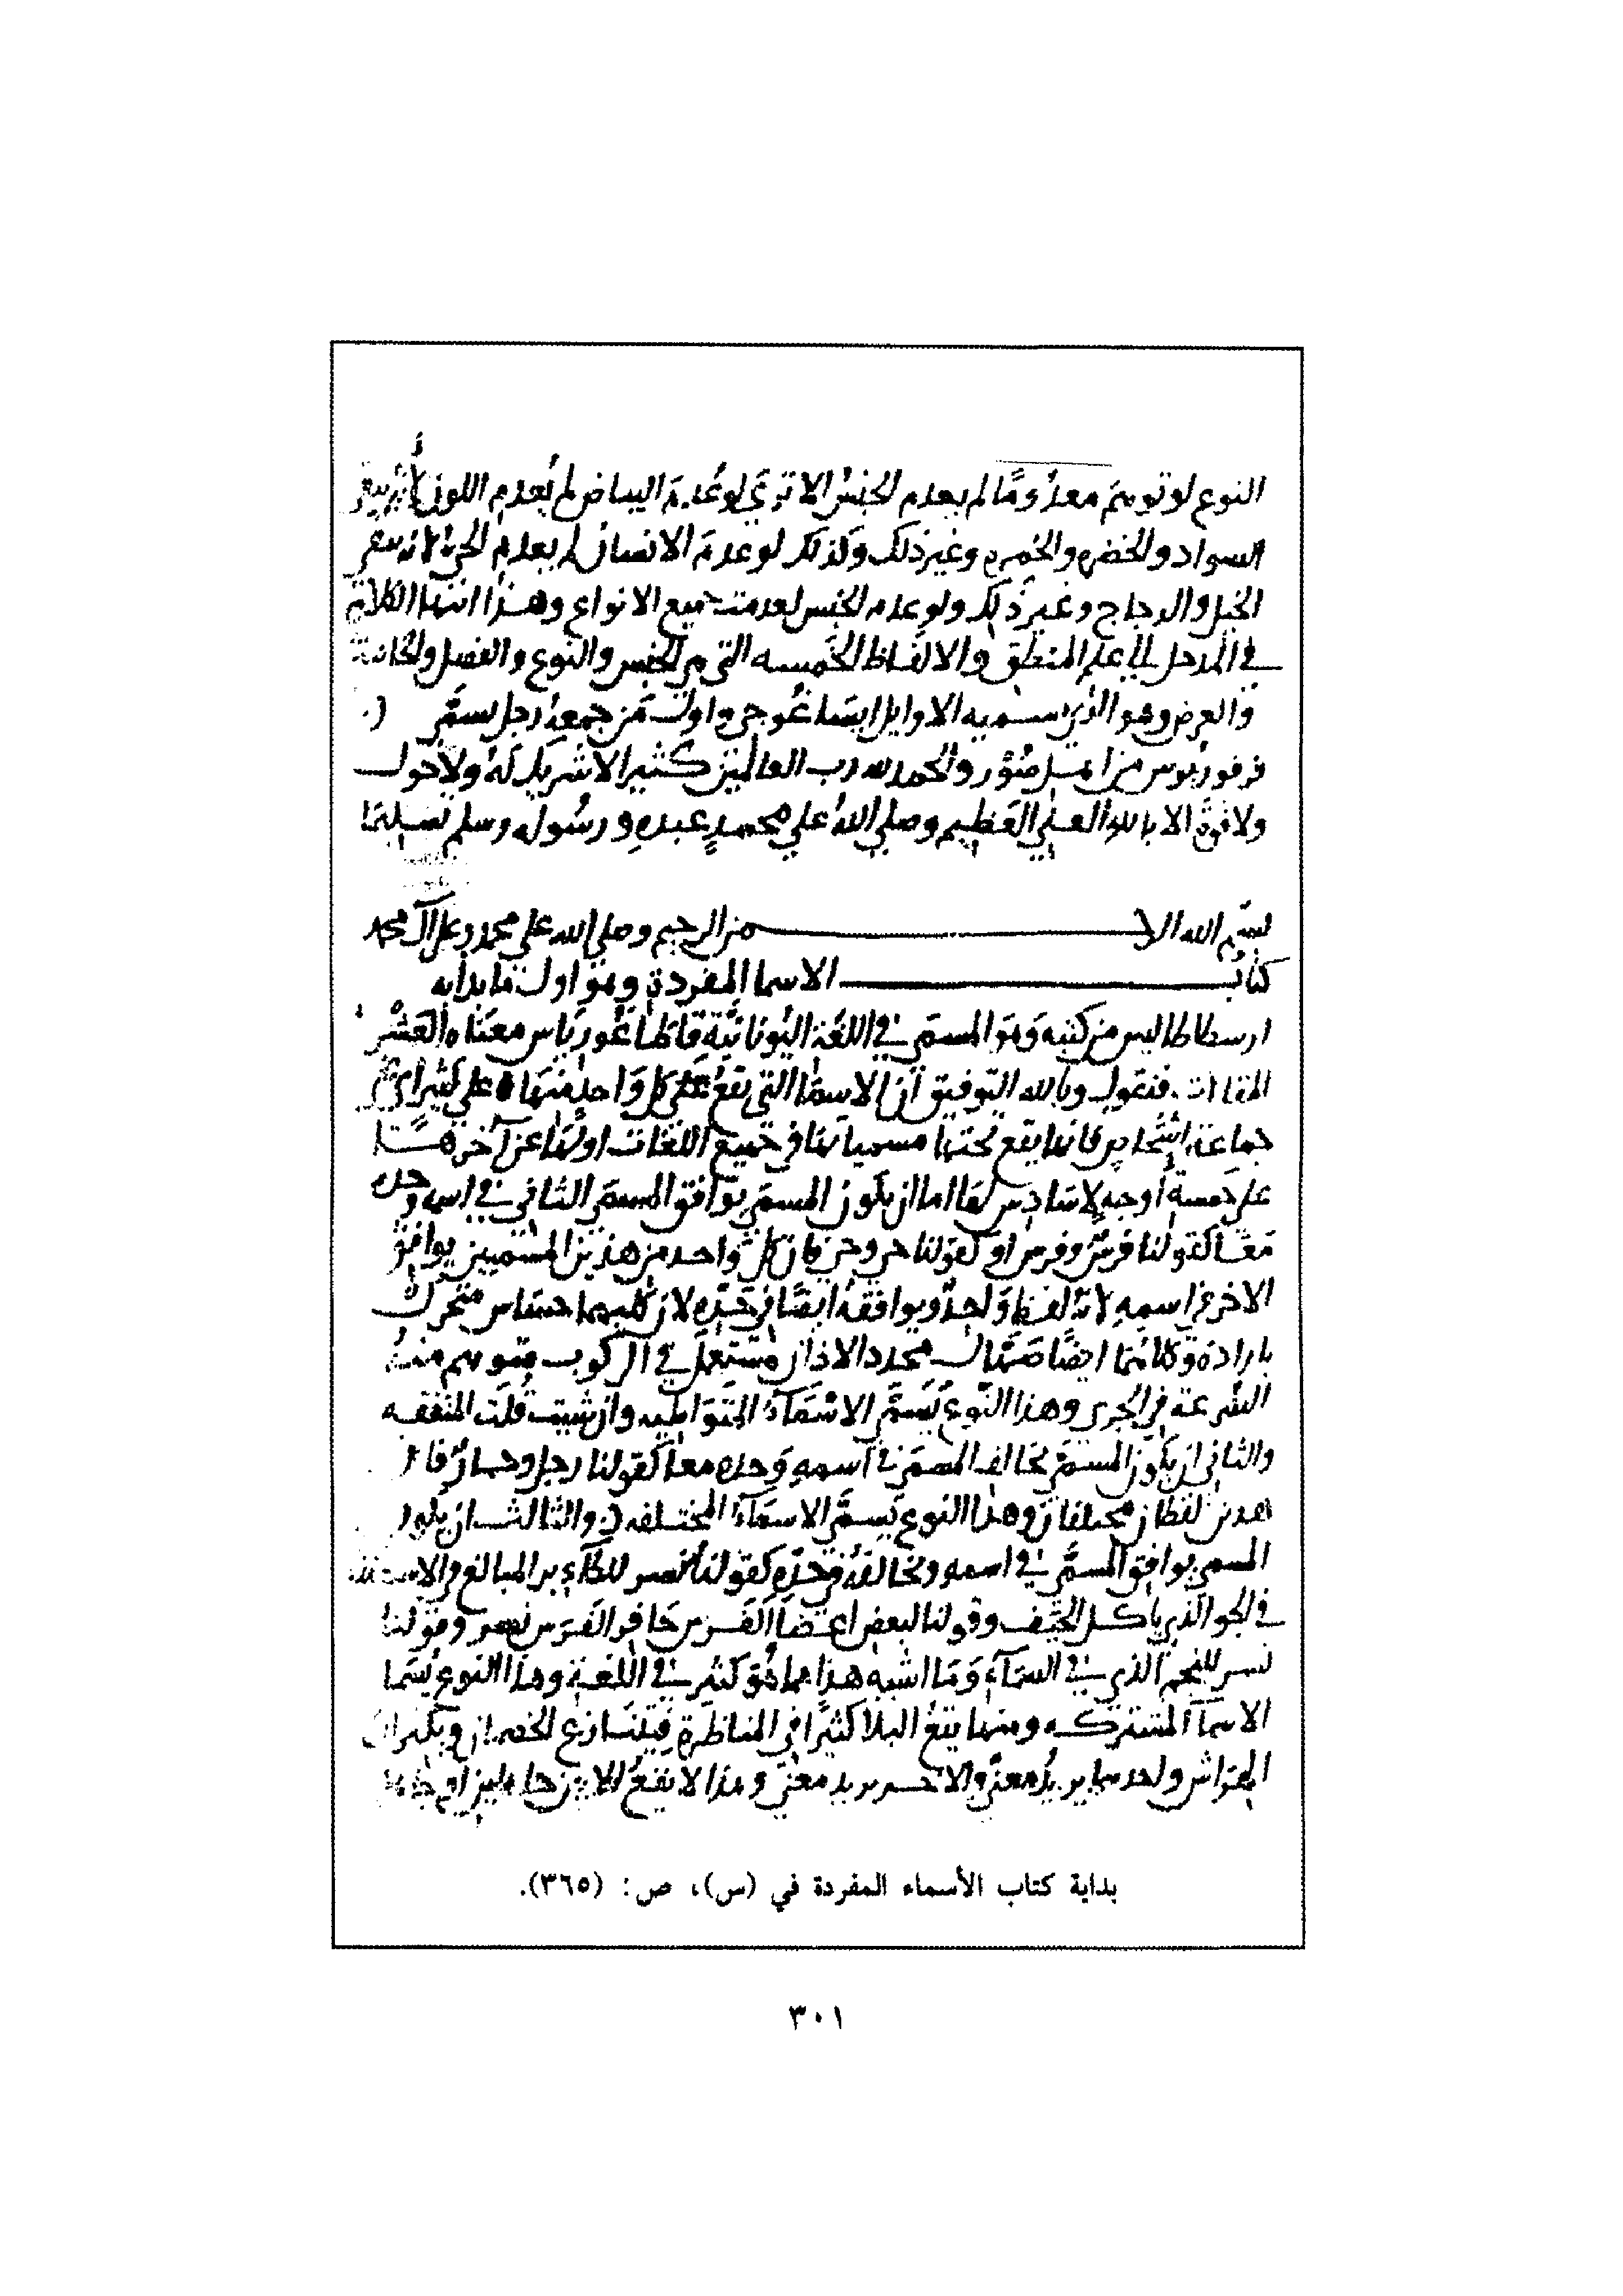 النوع لو توهم معدوما لم يعدم الجنس الا ترى لو عدم البياض لم يعدم اللون
السواد والخضره والحمره وغير ذلك وكذلك لو عدم الانسان لم يعدم الحي لانه
الخيل والدجاج وغير ذلك ولو عدم الجنس لعدمت جميع الانواع وهذا انتها الكلام
في المدخل الى علم المنطق والالفاظ الخمسه التي هي الجنس والنوع والفصل والخاصة
والعرض وهو الذي يسميه الاوايل ايساغوجي واول من جمعه رجل يسمى
فرفوريوس من اهل صور والحمد لله رب العالمين كثيرا لا شريك له ولا حول
ولا قوة الا بالله العلي العظيم وصلى الله على محمد عبده ورسوله وسلم تسليما
بسم الله الرحمن الرحيم وصلى الله على محمد وعلى آل محمد
كتاب الاسما المفردة وهو اول ما بدا به
ارسطاطاليس من كتبه وهو المسمى في اللغة اليونانية قاطاغورياس معناه العشر
المقالات فنقول وبالله التوفيق ان الاسما التي تقع على كل واحد منها على كثير اي
جماعة اشخاص فانما يقع تحتها مسمياتها في جميع اللغات اولها عن آخرها
على خمسة اوجه لا سادس لها اما ان يكون المسمى يوافق المسمى الثاني في اسمه وحده
معا كقولنا فرس وفرس او كقولنا حي وحي فان كل واحد من هذين المسميين يوافق
الاخر في اسمه لانه لفظ واحد ويوافقه ايضا في حده لان كليهما حساس متحرك
بارادة وكلاهما ايضا صهال محدد الاذان مستعمل في الركوب متوهم منه
السرعة في الجري وهذا النوع يسمى الاسماء المتواطيه وان شيت قلت المتفقه
والثاني ان يكون المسمى يخالف المسمى في اسمه وحده معا كقولنا رجل وحمار
هذين لفظان مختلفان وهذا النوع يسمى الاسماء المختلفه والثالث ان يكون
المسمى يوافق المسمى في اسمه ويخالفه في حده كقولنا نسر للطاير
في الجو الذي ياكل الجيف وقولنا لبعض اعضا الفرس حافر الفرس نسر وقولنا
نسر للنجم الذي في السماء وما اشبه هذا مما هو كثير في اللغة وهذا النوع يسما
الاسما المشتركه ومنها يقع البلا كثيرا في المناظرة فيتنازع الخصمان ويكثران
الهراش واحدهما يريد معنى والاخر يريد معنى وهذا لا يقع الا بين جاهلين او
بداية كتاب الأسماء المفردة في (س)، ص: (٣٦٥).
٣٠١